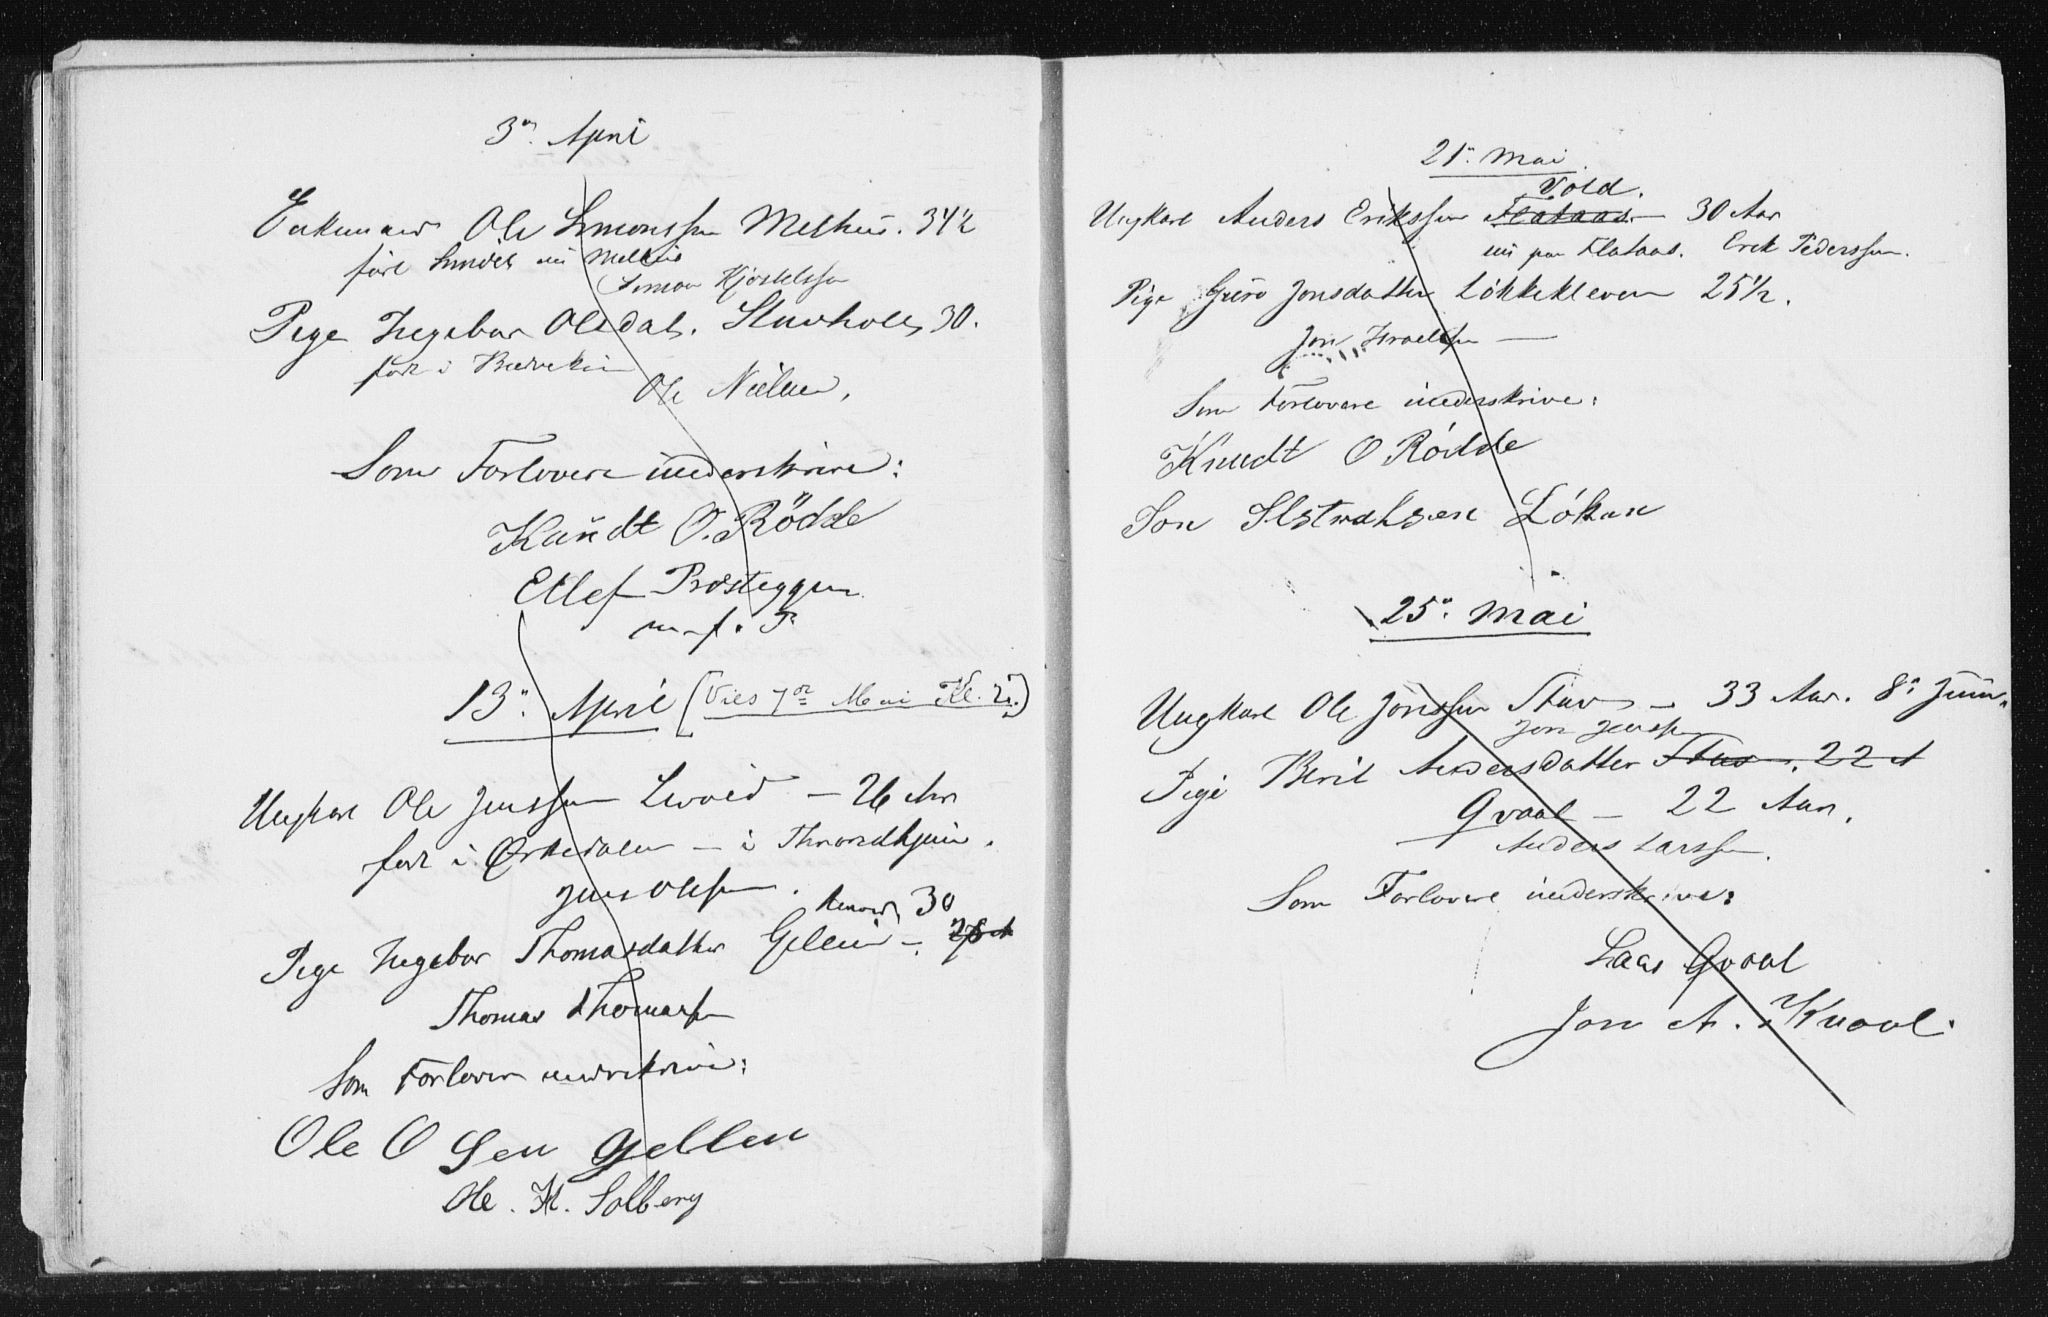 3. April
Enkemand Ole Simonssen Melhus. 34½
født Lundel nu Melhus
Simon Kjøstelssen
Pige Ingebor Olsdat. 30.
født i
Ole Nielsen,
Som Forlovere underskrive:
Knudt O. Rödde
Ellef Præsteggen
m. f. P
13. April (Vies 7de Mai Kl. 2.)
Ungkarl Ole Jenssen - 26 Aar
født i Ørkedalen - i Throndhjem.
Jens Olsen.
30
Pige Ingebor Thomasdatter Gellein - 28 A
Thomas Thomassen
Som Forlovere underskrive:
Ole O Sen Gellen
Ole. H. Solberg
21. Mai
Vold.
Ungkarl Anders Erikssen Flataas - 30 Aar
nu paa Flataas. Erik Pederssen.
Pige Guro Jonsdatter Løkkekleven 25½.
Jon Israelsen
Som Forlovere underskrive:
Knudt O Rödde
Jon Løkken
25. Mai
Ungkarl Ole Jonssen Stav - 33 Aar. 8. Juni.
Jon Jenssen
Pige Beret Andersdatter Stav. 22 A
Qvaal - 22 Aar.
Anders Larssen.
Som Forlovere underskrive:
Laars Qvaal
Jon A. Kvaal.